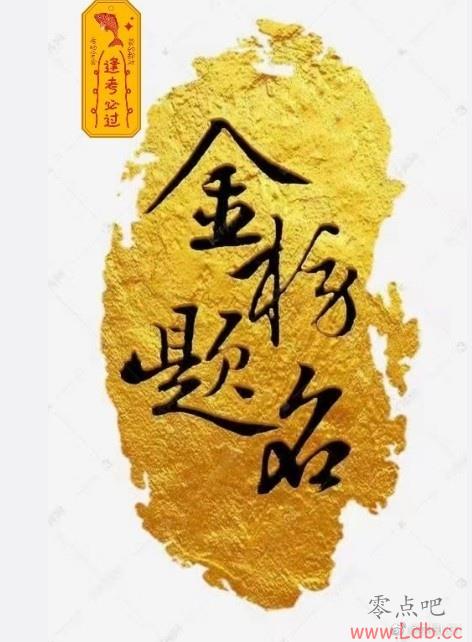 逢考必过
金榜
题名
零点吧
www.Ldb.cc